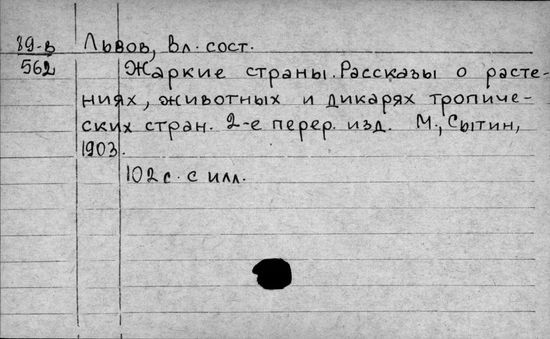 89-в Львов, Вл. сост.
562 Жаркие страны. Рассказы о расте-
ниях, животных и дикарях тропиче-
ских стран. 2-е перер. изд. М., Сытин,
1903.
102 с. с илл.